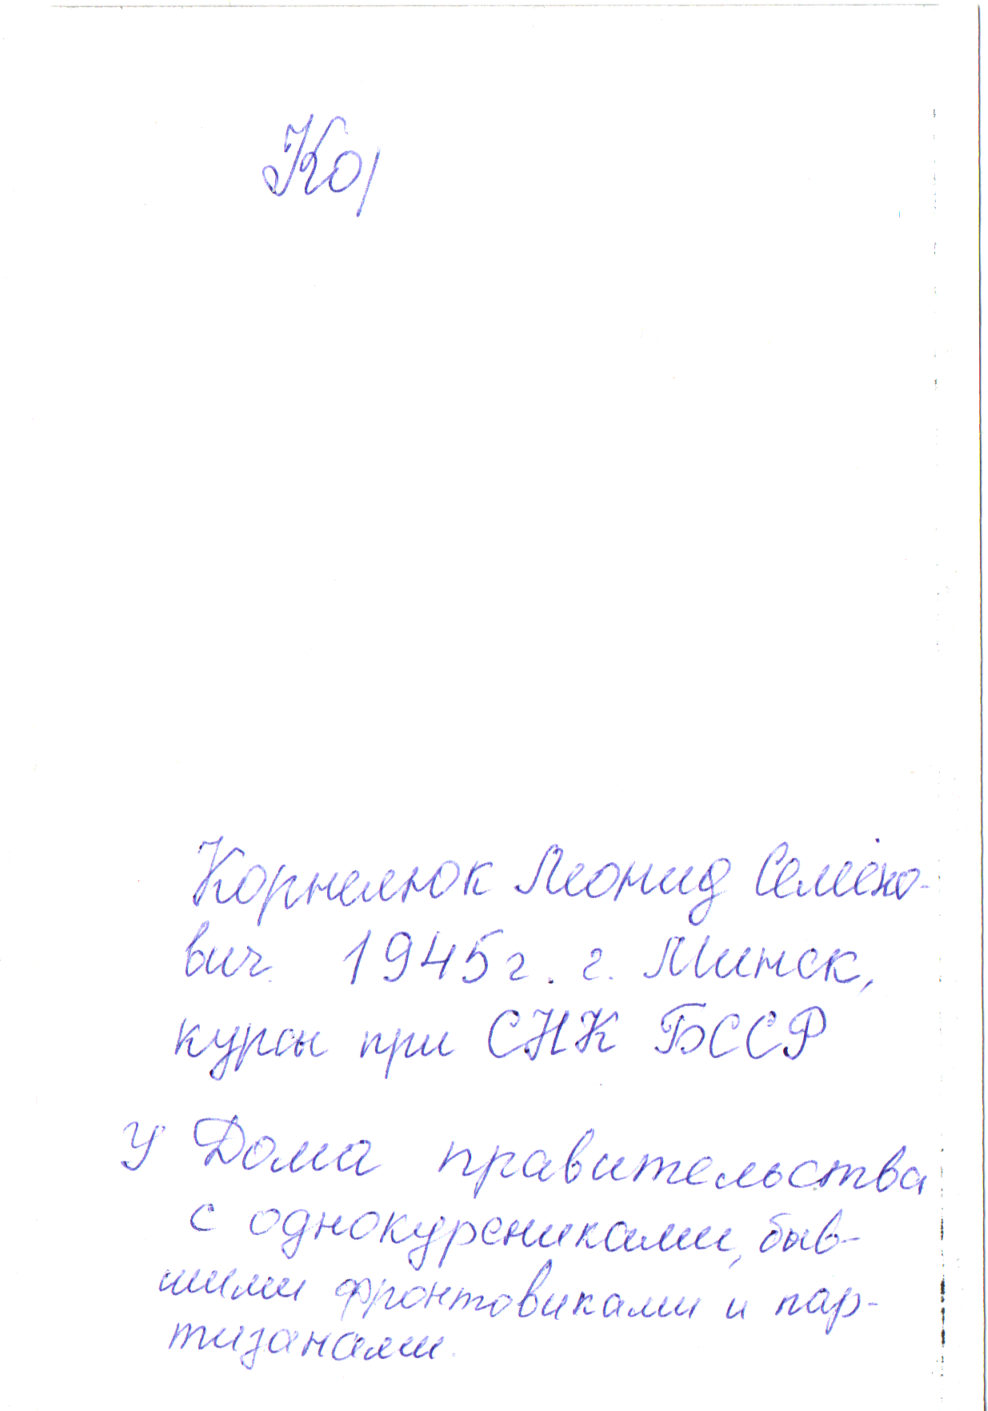 Кор
Корнелюк Леонид Семёно-
вич 1945г. г. Минск,
курсы при СНК БССР
У Дома правительства
с однокурсниками, быв-
шими фронтовиками и пар-
тизанами.